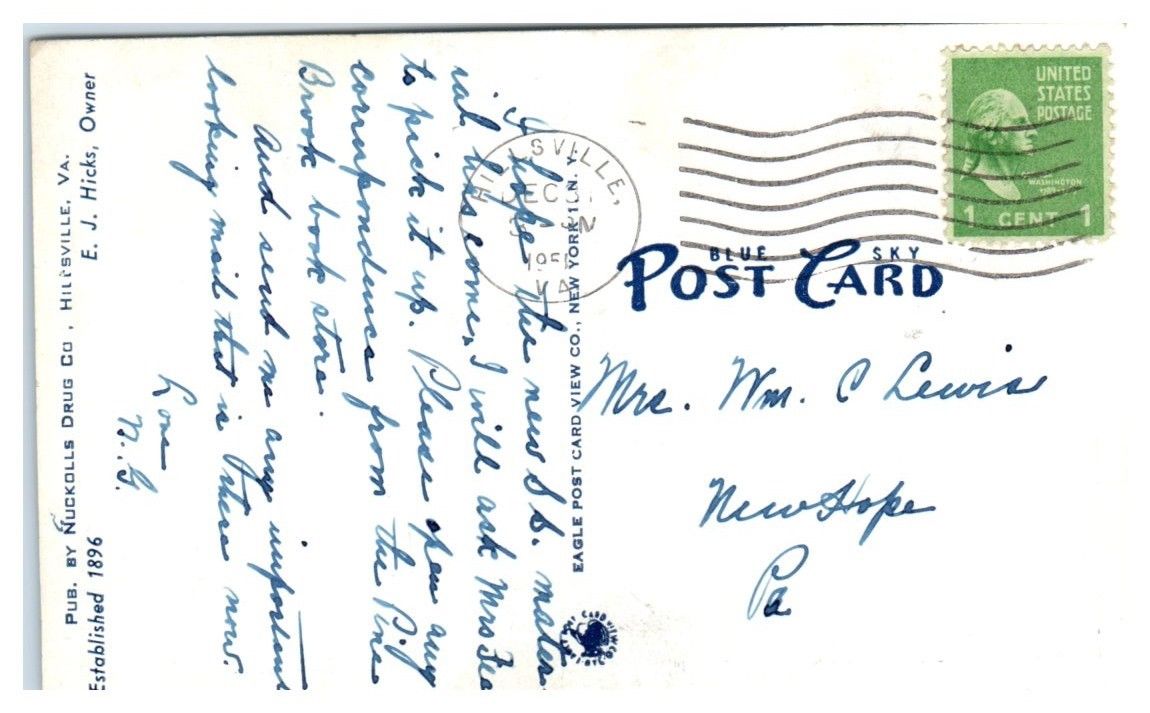 I hope the new S.S. mater-
ial has come, I will ask Mrs
to pick it up. Please open any
correspondence from the Pine
Brook book store.
And send me any important
looking mail that is there now.
Love
N.G.
PUB. BY NUCKOLLS DRUG CO., HILLSVILLE, VA.
E. J. Hicks, Owner
Established 1896
EAGLE POST CARD VIEW CO., NEW YORK 1, N. Y.
HILLSVILLE,
DEC
195
VA
UNITED
STATES
POSTAGE
WASHINGTON
1 CENT 1
BLUE SKY
POST CARD
Mrs. Wm. C Lewis
New Hope
Pa